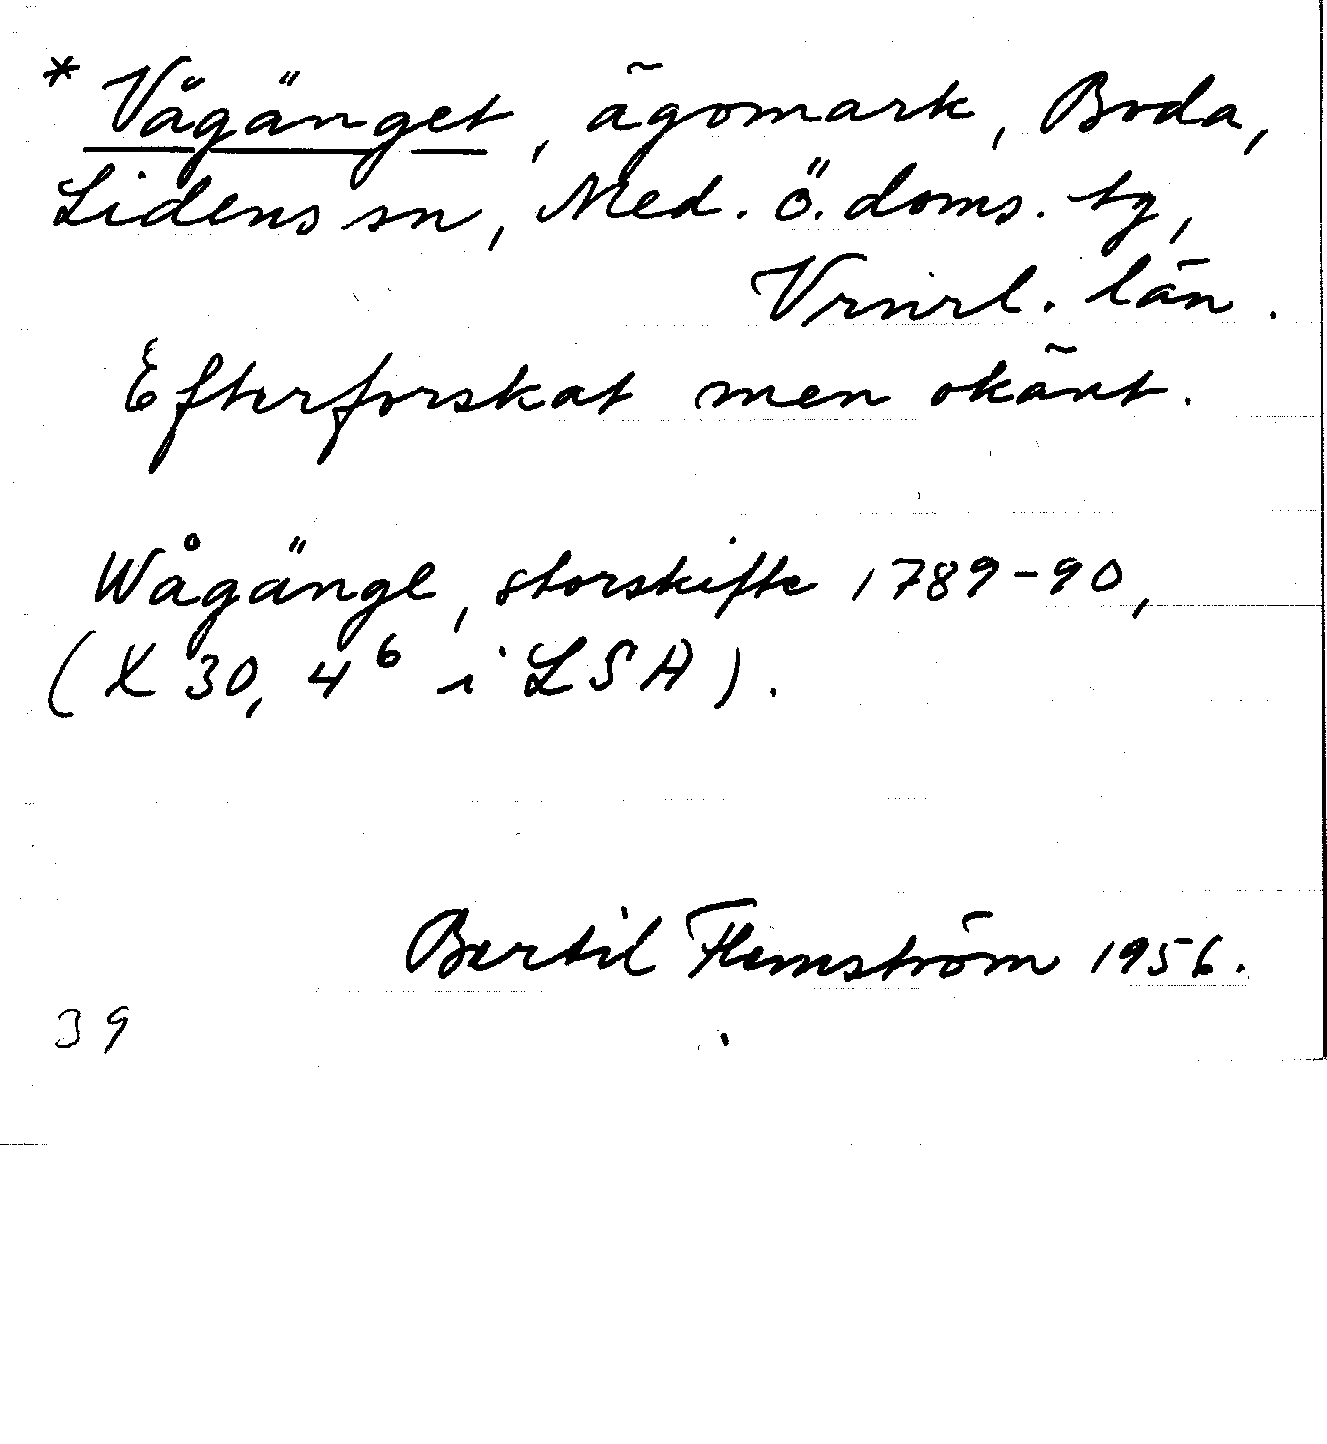 * Vågänget, ägomark, Boda,
Lidens sn, Med. Ö. doms. tg,
Vrnrl. län.
Efterforskat men okänt.
Wågänge, storskifte 1789-90,
(X 30, 4⁶ i LSA).
Bertil Flemström 1956.
39